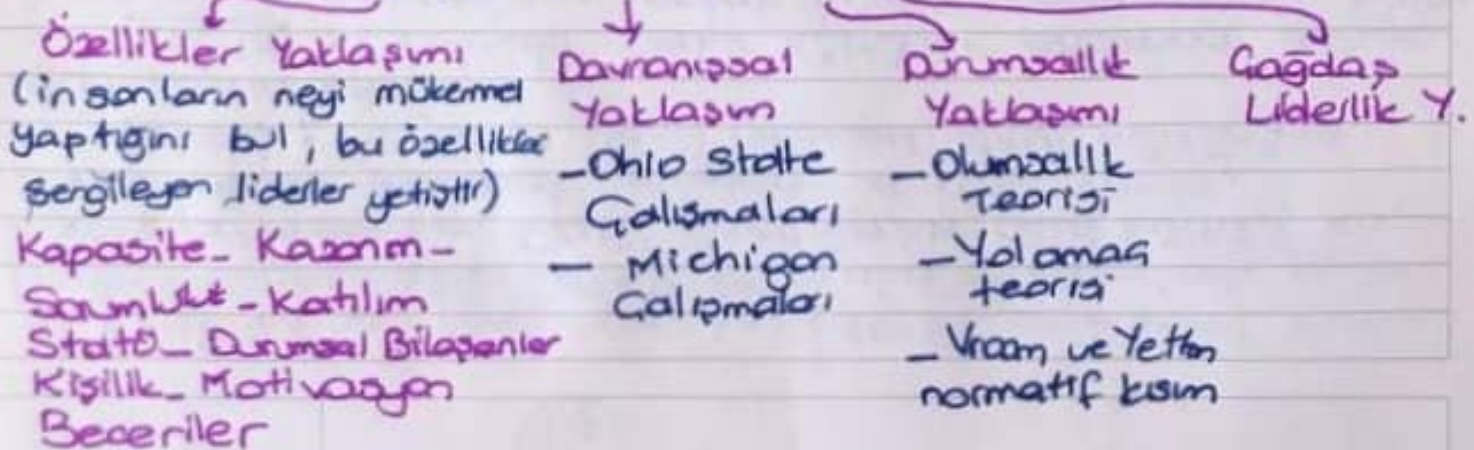 Özellikler Yaklaşımı
(insanların neyi mükemmel
yaptığını bul, bu özellikler
sergileyen liderler yetiştir)
Kapasite - Kazanım -
Sorumluluk - Katılım
Statü - Durumsal Bileşenler
Kişilik - Motivasyon
Beceriler
Davranışsal
Yaklaşım
- Ohio State
Çalışmaları
- Michigan
Çalışmaları
Durumsallık
Yaklaşımı
- Olumsallık
Teorisi
- Yol amaç
teorisi
- Vroom ve Yetton
normatif kısım
Çağdaş
Liderlik Y.